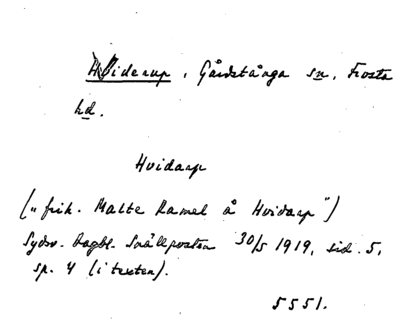 Hviderup, Gårdstånga sn, Frosta
hd.
Hvidarp
("frih. Malte Ramel å Hvidarp")
Sydsv. Dagbl. Snällposten 30/5 1919, sid. 5,
sp. 4 (i texten).
5551.